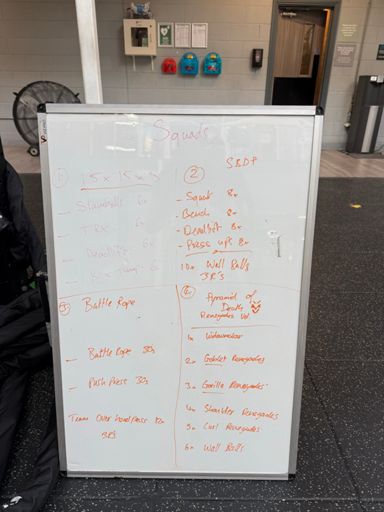 Squads
1) 15 x 15 x
2
SBDP
- Slamballs 6x
- TRX 6x
- Deadlift 6x
6x
- Squat 8x
- Bench 8x
- Deadlift 8x
- Press ups 8x
10x Wall Balls
3R's
3. Battle Rope
- Battle Rope 30s
- Push Press 30s
Team Over head press 12x
3R's
4. Pyramid of
Death
Renegades
1x Widowmaker
2x Goblet Renegades
3x Gorilla Renegades
4x Shoulder Renegades
5x Curl Renegades
6x Wall Balls